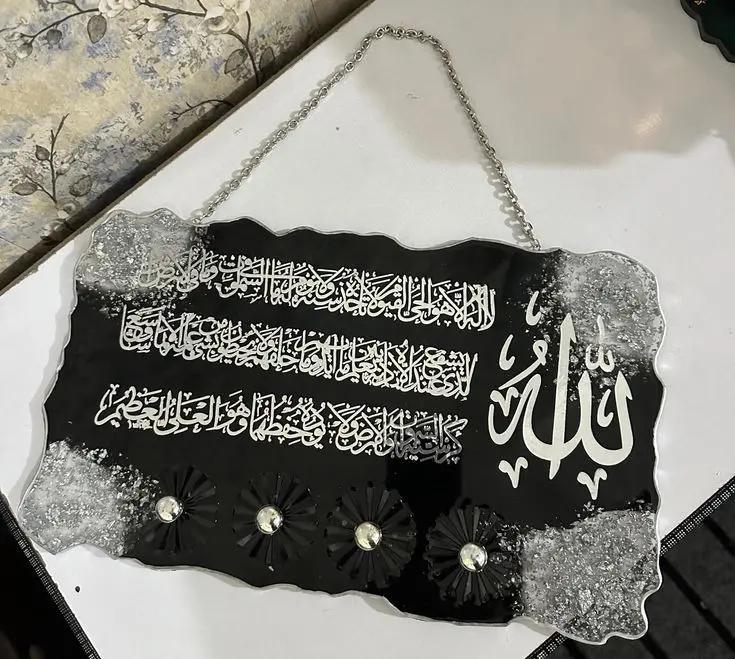 الله
لا اله الا هو الحي القيوم لا تأخذه سنة ولا نوم له ما في السموت وما في الارض
من ذا الذي يشفع عنده الا باذنه يعلم ما بين ايديهم وما خلفهم ولا يحيطون بشيء من علمه الا بما شاء وسع
كرسيه السموت والارض ولا يؤده حفظهما وهو العلي العظيم